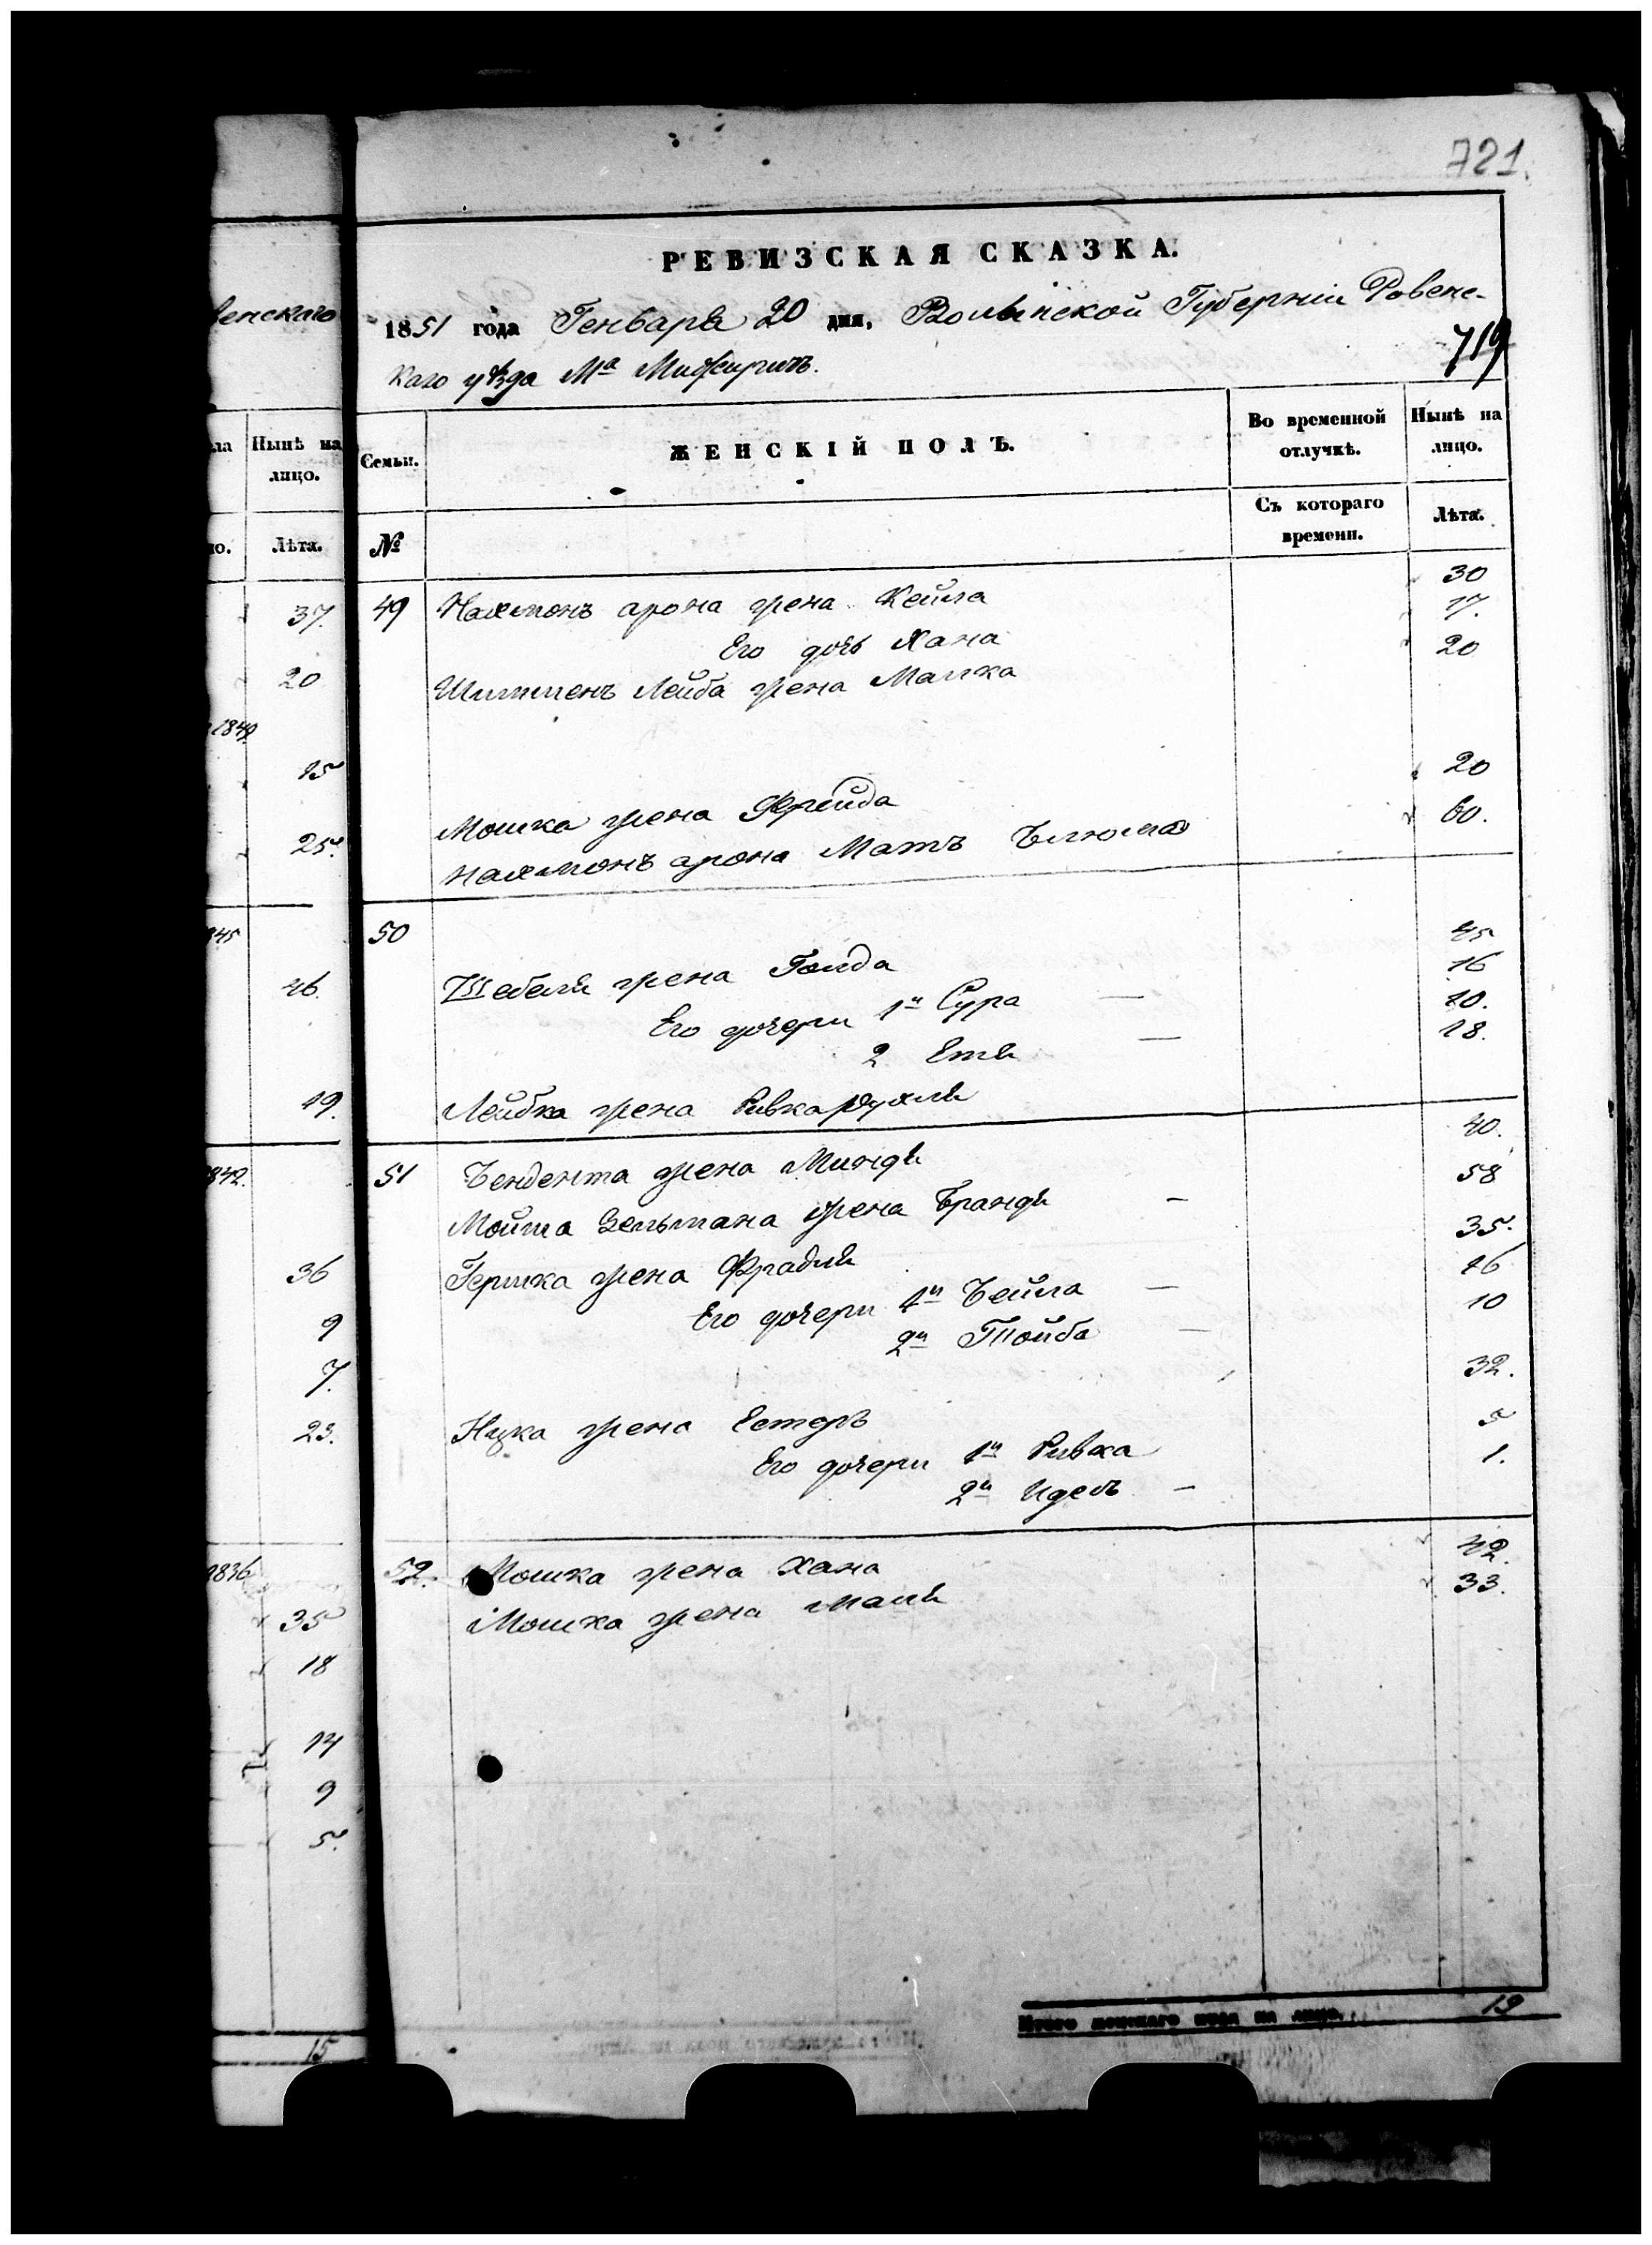 721.
РЕВИЗСКАЯ СКАЗКА.
венскаго
1851 года Генваря 20 дня, Волынской Губерніи Ровенс-
719
каго уѣзда Мª Межиричъ.
ла
Нынѣ на лицо.
Семьи.
ЖЕНСКІЙ ПОЛЪ.
Во временной отлучкѣ.
Нынѣ на лицо.
но.
Лѣта.
№
Съ котораго времени.
Лѣта.
37. 49 Нахмонъ арона жена Кейла 30
Его дочь Хана 17.
20 Шлиоменъ Лейба жена Малка 20
1849
15
Мошка жена Фрейда 20
25. Нахмонъ арона Мать Блюма 60.
845 50
46. жена Голда 45
Его дочери 1я Сура — 16
2 Етя — 10.
19. Лейбка жена Ривка Рухля 18.
842. 51 Бендета жена Миндя 40.
Мойша Зельмана жена Брандя — 58
36 Гершка жена Фрадля 35.
9 Его дочери 1я Бейла — 16
2я Тойба — 10
7.
23. Ицка жена Естеръ 32.
Его дочери 1я Ривка 5
2я Идесъ — 1.
1836 52. Мошка жена Хана 42.
35 Мошка жена Маля 33.
18
14
9
5.
Итого женскаго пола на лицо. 19
15